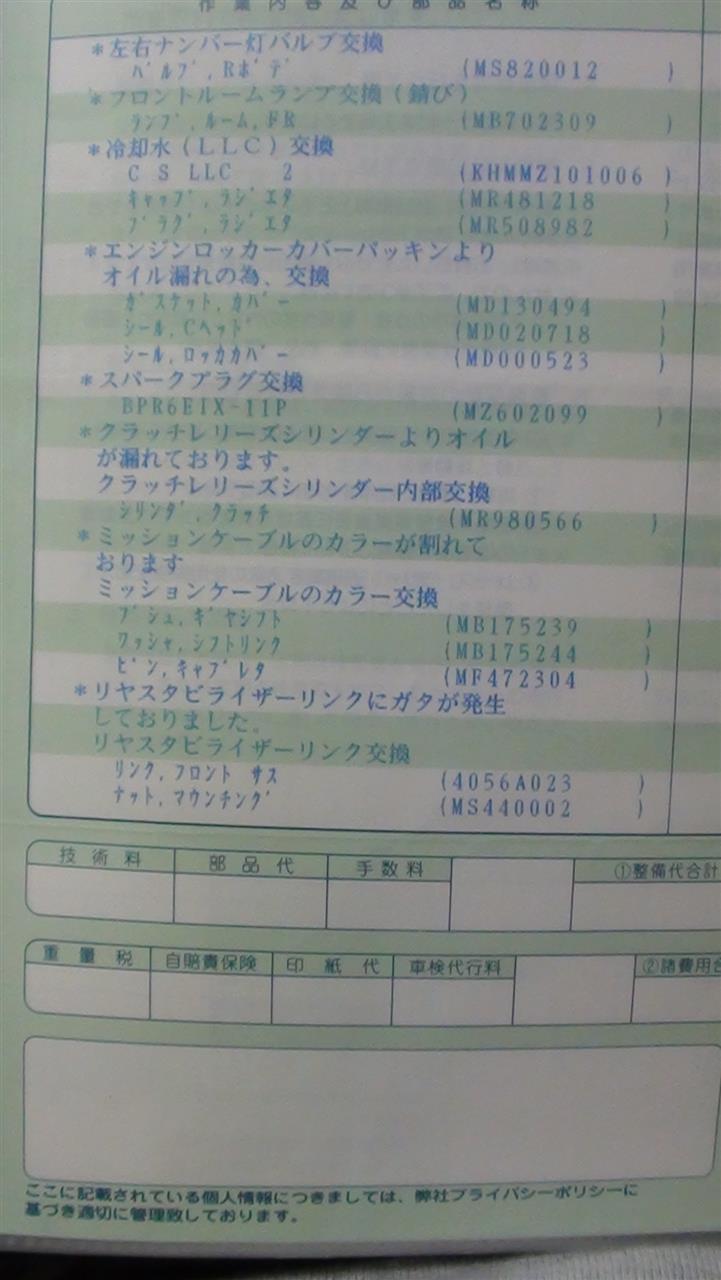 作業内容及び部品名称
*左右ナンバー灯バルブ交換
バルブ,Rボデ (MS820012 )
*フロントルームランプ交換(錆び)
ランプ,ルーム,FR (MB702309 )
*冷却水(LLC)交換
C S LLC 2 (KHMMZ101006 )
キャップ,ラジエタ (MR481218 )
プラグ,ラジエタ (MR508982 )
*エンジンロッカーカバーパッキンより
オイル漏れの為、交換
ガスケット,カバー (MD130494 )
シール,Cヘッド (MD020718 )
シール,ロッカカバー (MD000523 )
*スパークプラグ交換
BPR6EIX-11P (MZ602099 )
*クラッチレリーズシリンダーよりオイル
が漏れております。
クラッチレリーズシリンダー内部交換
シリンダ,クラッチ (MR980566 )
*ミッションケーブルのカラーが割れて
おります
ミッションケーブルのカラー交換
ブシュ,ギヤシフト (MB175239 )
ワッシャ,シフトリンク (MB175244 )
ピン,キャブレタ (MF472304 )
*リヤスタビライザーリンクにガタが発生
しておりました。
リヤスタビライザーリンク交換
リンク,フロント サス (4056A023 )
ナット,マウンチング (MS440002 )
技術料 部品代 手数料 ①整備代合計
重量税 自賠責保険 印紙代 車検代行料 ②諸費用合
ここに記載されている個人情報につきましては、弊社プライバシーポリシーに
基づき適切に管理致しております。